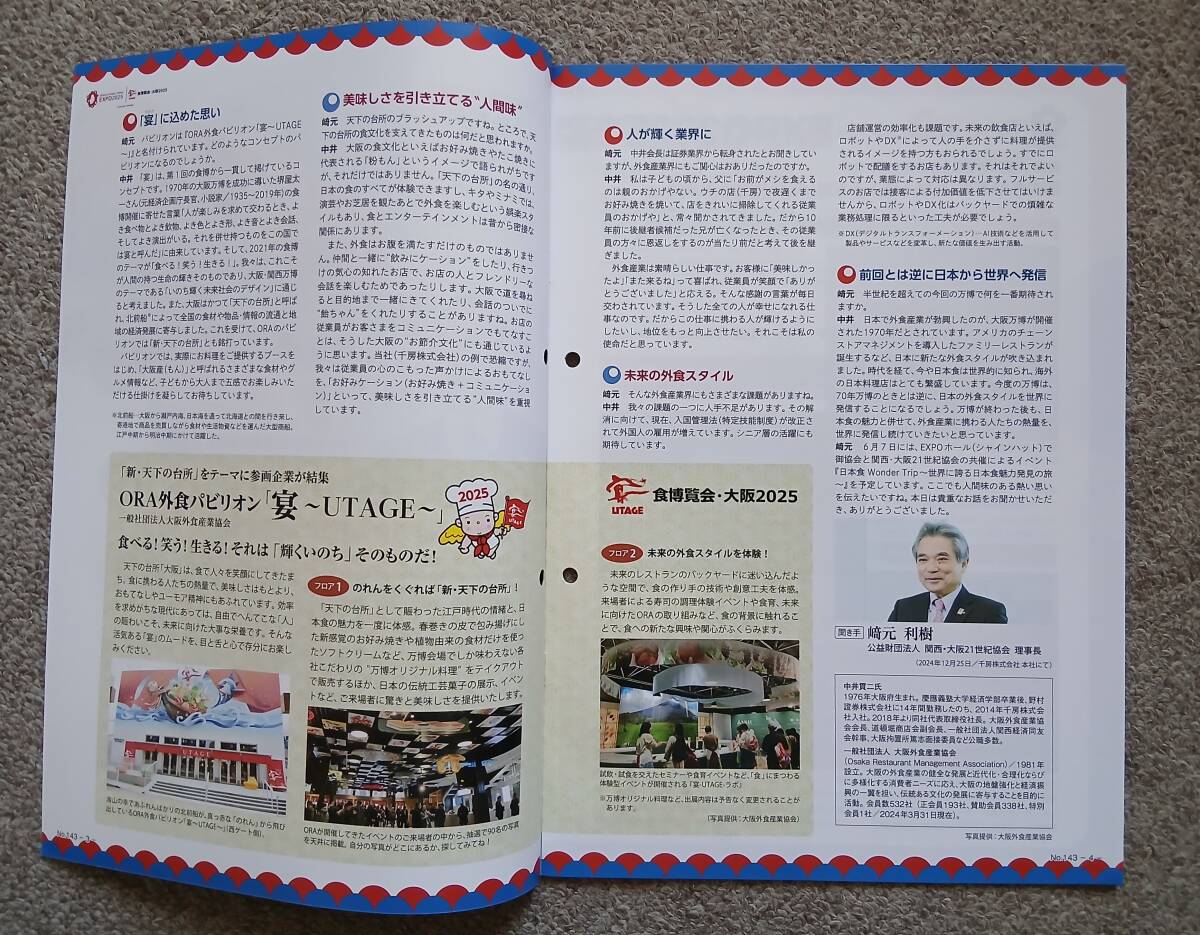 EXPO2025
食博覧会・大阪2025
「宴」に込めた思い
﨑元 パビリオンは『ORA外食パビリオン「宴～UTAGE
～」』と名付けられています。どのようなコンセプトのパ
ビリオンになるのでしょうか。
中井 「宴」は、第1回の食博から一貫して掲げているコ
ンセプトです。「1970年の大阪万博を成功に導いた堺屋太
一さん(元経済企画庁長官、小説家/1935～2019年)の食
博開催に寄せた言葉「人が楽しみを求めて交わるとき、よ
き食べ物とよき飲物、よき色とよき形、よき音とよき会話、
そしてよき演出がいる。それを併せ持つものをこの国で
は宴と呼んだ」に由来しています。そして、2021年の食博
のテーマが「食べる!笑う!生きる!」。我々は、これこそ
が人間の持つ生命の輝きそのものであり、大阪・関西万博
のテーマである「いのち輝く未来社会のデザイン」に通じ
ると考えました。また、大阪はかつて「天下の台所」と呼ば
れ、北前船※によって全国の食材や物品・情報の流通と地
域の経済発展に寄与しました。これを受けて、ORAのパビ
リオンでは「新・天下の台所」とも銘打っています。
パビリオンでは、実際にお料理をご提供するブースを
はじめ、「大阪産(もん)」と呼ばれるさまざまな食材やグル
メ情報など、子どもから大人まで五感でお楽しみいた
だける仕掛けを凝らしてお待ちしています。
※北前船…大阪から瀬戸内海、日本海を通って北海道との間を行き来し、
寄港地で商品を売買しながら食材や生活物資などを運んだ大型商船。
江戸中期から明治中期にかけて活躍した。
美味しさを引き立てる“人間味”
﨑元 天下の台所のブラッシュアップですね。ところで、天
下の台所の食文化を支えてきたものは何だと思われますか。
中井 大阪の食文化といえばお好み焼きやたこ焼きに
代表される「粉もん」というイメージで語られがちです
が、それだけではありません。「天下の台所」の名の通り、
日本の食のすべてが体験できますし、キタやミナミでは、
演芸やお芝居を観たあとで外食を楽しむという娯楽スタ
イルもあり、食とエンターテインメントは昔から密接な
関係にあります。
また、外食はお腹を満たすだけのものではありませ
ん。仲間と一緒に“飲みにケーション”をしたり、行きつ
けの気心の知れたお店で、お店の人とフレンドリーな
会話を楽しむためであったりします。大阪で道を尋ね
ると目的地まで一緒にきてくれたり、会話のついでに
“飴ちゃん”をくれたりすることがありますね。お店の
従業員がお客さまをコミュニケーションでもてなすこ
とは、そうした大阪の“お節介文化”にも通じているよ
うに思います。当社(千房株式会社)の例で恐縮ですが、
我々は従業員の心のこもった声かけによるおもてなし
を、「お好みケーション(お好み焼き+コミュニケーショ
ン)」といって、美味しさを引き立てる“人間味”を重視
しています。
「新・天下の台所」をテーマに参画企業が結集
ORA外食パビリオン「宴 ～UTAGE～」
一般社団法人大阪外食産業協会
2025
食べる!笑う!生きる!それは「輝くいのち」そのものだ!
天下の台所「大阪」は、食で人々を笑顔にしてきたま
ち。食に携わる人たちの熱量で、美味しさはもとより、
おもてなしやユーモア精神にもあふれています。効率
を求めがちな現代にあっては、自由でへんてこな「人」
の賑わいこそ、未来に向けた大事な栄養です。そんな
活気ある「宴」のムードを、目と舌と心で存分にお楽し
みください。
フロア1 のれんをくぐれば「新・天下の台所」!
「天下の台所」として賑わった江戸時代の情緒と、日
本食の魅力を一度に体感。春巻きの皮で包み揚げにし
た新感覚のお好み焼きや植物由来の食材だけを使っ
たソフトクリームなど、万博会場でしか味わえない各
社こだわりの“万博オリジナル料理”をテイクアウト
で販売するほか、日本の伝統工芸菓子の展示、イベン
トなど、ご来場者に驚きと美味しさを提供いたします。
UTAGE
海山の幸であふれんばかりの北前船が、真っ赤な「のれん」から飛び
出しているORA外食パビリオン「宴～UTAGE～」(西ゲート側)。
ORAが開催してきたイベントのご来場者の中から、抽選で90名の写真
を天井に掲載。自分の写真がどこにあるか、探してみてね!
No.143 - 3
人が輝く業界に
﨑元 中井会長は証券業界から転身されたとお聞きしてい
ますが、外食産業界にもご関心はおありだったのですか。
中井 私は子どもの頃から、父に「お前がメシを食える
のは親のおかげやない。ウチの店(千房)で夜遅くまで
お好み焼きを焼いて、店をきれいに掃除してくれる従業
員のおかげや」と、常々聞かされてきました。だから10
年前に後継者候補だった兄が亡くなったとき、その従業
員の方々に恩返しをするのが当たり前だと考えて後を継
ぎました。
外食産業は素晴らしい仕事です。お客様に「美味しかっ
たよ」「また来るね」って喜ばれ、従業員が笑顔で「ありが
とうございました」と応える。そんな感謝の言葉が毎日
交わされています。そうした全ての人が幸せになれる仕
事なのです。だからこの仕事に携わる人が輝けるように
したいし、地位をもっと向上させたい。それこそは私の
使命だと思っています。
未来の外食スタイル
﨑元 そんな外食産業界にもさまざまな課題がありますね。
中井 我々の課題の一つに人手不足があります。その解
消に向けて、現在、入国管理法(特定技能制度)が改正さ
れて外国人の雇用が増えています。シニア層の活躍にも
期待しています。
店舗運営の効率化も課題です。未来の飲食店といえば、
ロボットやDX※によって人の手を介さずに料理が提供
されるイメージを持つ方もおられるでしょう。すでにロ
ボットで配膳をするお店もあります。それはそれでよい
のですが、業態によって対応は異なります。フルサービ
スのお店では接客による付加価値を低下させてはいけま
せんから、ロボットやDX化はバックヤードでの煩雑な
業務処理に限るといった工夫が必要でしょう。
※DX(デジタルトランスフォーメーション)…AI技術などを活用して
製品やサービスなどを変革し、新たな価値を生み出す活動。
前回とは逆に日本から世界へ発信
﨑元 半世紀を超えての今回の万博で何を一番期待され
ますか。
中井 日本で外食産業が勃興したのが、大阪万博が開催
された1970年だとされています。アメリカのチェーン
ストアマネジメントを導入したファミリーレストランが
誕生するなど、日本に新たな外食スタイルが吹き込まれ
ました。時代を経て、今や日本食は世界的に知られ、海外
の日本料理店はとても繁盛しています。今度の万博は、
70年万博のときとは逆に、日本の外食スタイルを世界に
発信することになるでしょう。万博が終わった後も、日
本食の魅力と併せて、外食産業に携わる人たちの熱量を、
世界に発信し続けていきたいと思っています。
﨑元 6月7日には、EXPOホール(シャインハット)で
御協会と関西・大阪21世紀協会の共催によるイベント
『日本食 Wonder Trip～世界に誇る日本食魅力発見の旅
～』を予定しています。ここでも人間味のある熱い思い
を伝えたいですね。本日は貴重なお話をお聞かせいただ
き、ありがとうございました。
UTAGE
食博覧会・大阪2025
フロア2 未来の外食スタイルを体験!
未来のレストランのバックヤードに迷い込んだよ
うな空間で、食の作り手の技術や創意工夫を体感。
来場者による寿司の調理体験イベントや食育、未来
に向けたORAの取り組みなど、食の背景に触れるこ
とで、食への新たな興味や関心がふくらみます。
試飲・試食を交えたセミナーや食育イベントなど、「食」にまつわる
体験型イベントが開催される「宴-UTAGE-ラボ」
※万博オリジナル料理など、出展内容は予告なく変更されることが
あります。
(写真提供:大阪外食産業協会)
聞き手 﨑元 利樹
公益財団法人 関西・大阪21世紀協会 理事長
(2024年12月25日/千房株式会社 本社にて)
中井貫二氏
1976年大阪府生まれ。慶應義塾大学経済学部卒業後、野村
證券株式会社に14年間勤務したのち、2014年千房株式会
社入社。2018年より同社代表取締役社長。大阪外食産業協
会会長、道頓堀商店会副会長、一般社団法人関西経済同友
会幹事、大阪拘置所篤志面接委員など公職多数。
一般社団法人 大阪外食産業協会
(Osaka Restaurant Management Association)/1981年
設立。大阪の外食産業の健全な発展と近代化・合理化ならび
に多様化する消費者ニーズに応え、大阪の地盤強化と経済振
興の一翼を担い、伝統ある文化の発展に寄与することを目的に
活動。会員数532社(正会員193社、賛助会員338社、特別
会員1社/2024年3月31日現在)。
写真提供:大阪外食産業協会
No.143 - 4